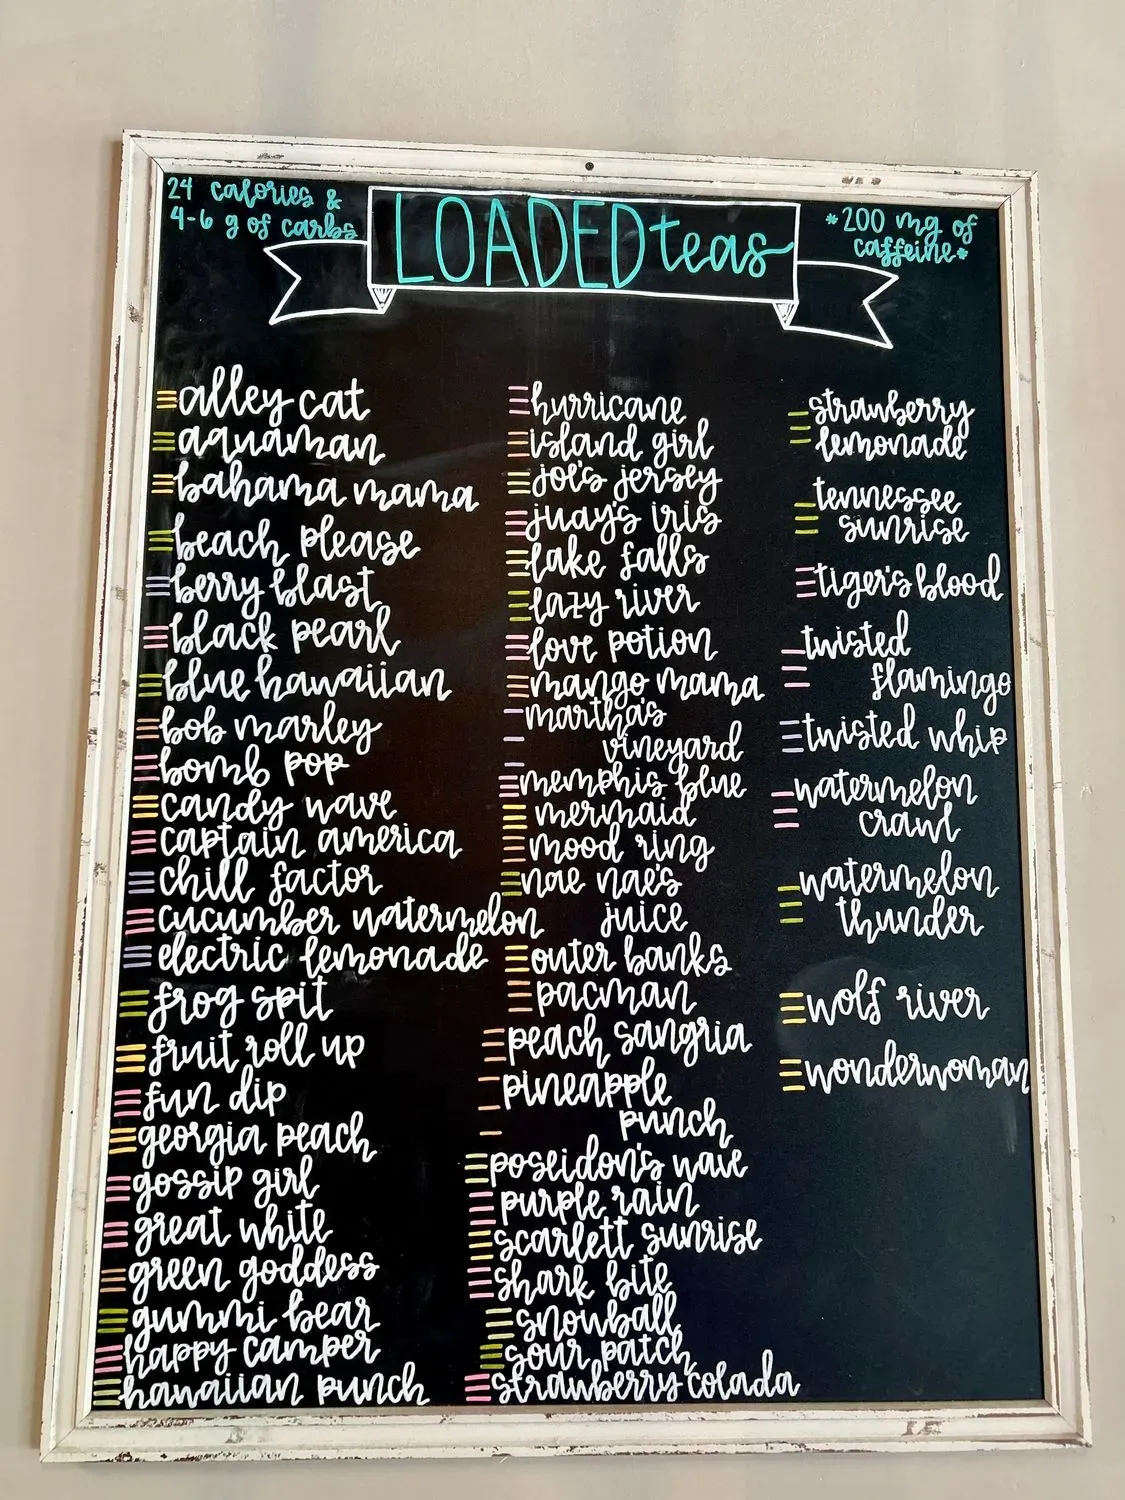 24 calories &
4-6 g of carbs
LOADED teas
*200 mg of
caffeine*
alley cat
aquaman
bahama mama
beach please
berry blast
black pearl
blue hawaiian
bob marley
bomb pop
candy wave
captain america
chill factor
cucumber watermelon
electric lemonade
frog spit
fruit roll up
fun dip
georgia peach
gossip girl
great white
green goddess
gummi bear
happy camper
hawaiian punch
hurricane
island girl
joe's jersey
juay's iris
lake falls
lazy river
love potion
mango mama
martha's
vineyard
memphis blue
mermaid
mood ring
nae nae's
juice
outer banks
pacman
peach sangria
pineapple
punch
poseidon's wave
purple rain
scarlett sunrise
shark bite
snowball
sour patch
strawberry colada
strawberry
lemonade
tennessee
sunrise
tiger's blood
twisted
flamingo
twisted whip
watermelon
crawl
watermelon
thunder
wolf river
wonderwoman